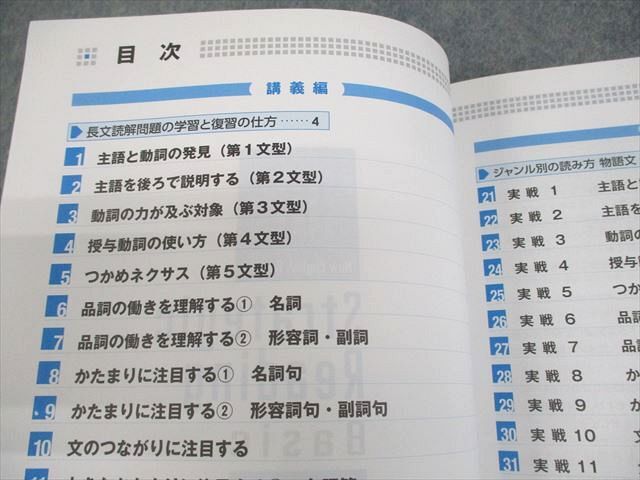 目次
講義編
長文読解問題の学習と復習の仕方……4
1 主語と動詞の発見（第1文型）
2 主語を後ろで説明する（第2文型）
3 動詞の力が及ぶ対象（第3文型）
4 授与動詞の使い方（第4文型）
5 つかめネクサス（第5文型）
6 品詞の働きを理解する① 名詞
7 品詞の働きを理解する② 形容詞・副詞
8 かたまりに注目する① 名詞句
9 かたまりに注目する② 形容詞句・副詞句
10 文のつながりに注目する
11
ジャンル別の読み方 物語文
21 実戦 1 主語と
22 実戦 2 主語を
23 実戦 3 動詞の
24 実戦 4 授与
25 実戦 5 つか
26 実戦 6 品詞
27 実戦 7 品
28 実戦 8 か
29 実戦 9 か
30 実戦 10 文
31 実戦 11